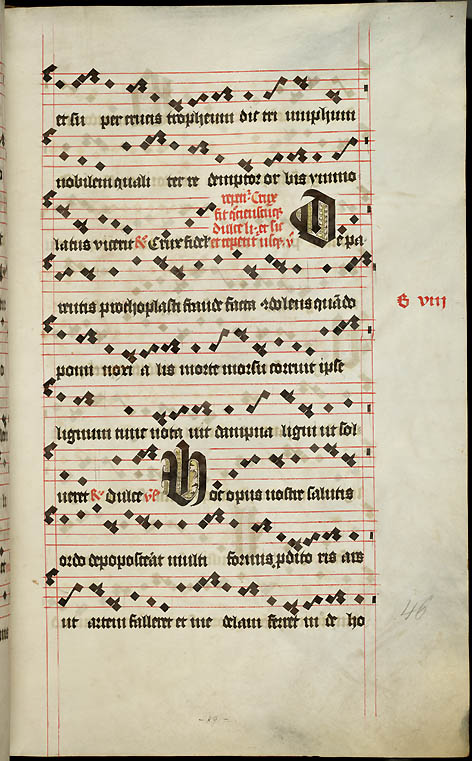 et sup per crucis tropheum dic tri umphum
nobilem quali ter re demptor or bis ymmo
latus vicerit Crux fidel
repetit Crux
sit
dulce li et sic
et repetit usq v
De pa
rentis prothoplasti fraude facta condolens quãdo
pomi noxi a lis morte morsu corruit ipse
lignum tunc nota uit dampna ligni ut sol
ueret Dulce
Hoc opus nostre salutis
ordo depoposcerat multi formis pdito ris ars
ut artem falleret et me delam ferret in de ho
G viij
46